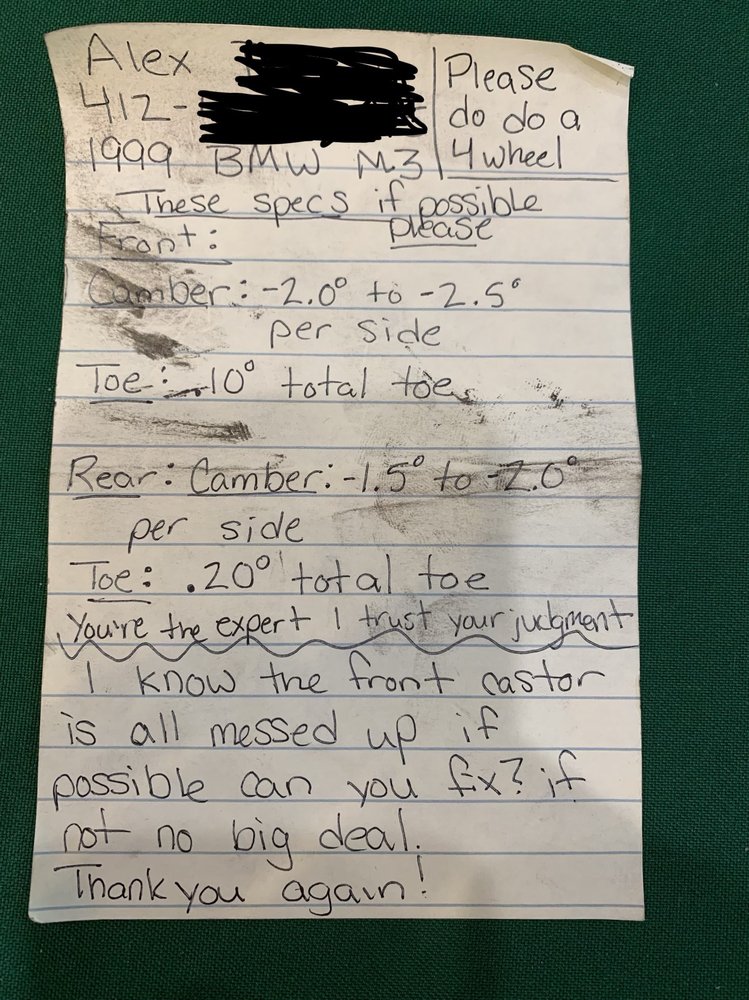 Alex
412-
1999 BMW M3
Please
do do a
4 wheel
These specs if possible
please
Front:
Camber: -2.0° to -2.5°
per side
Toe: .10° total toe
Rear: Camber: -1.5° to -2.0°
per side
Toe: .20° total toe
You're the expert I trust your judgment
I know the front castor
is all messed up if
possible can you fix? if
not no big deal.
Thank you again!